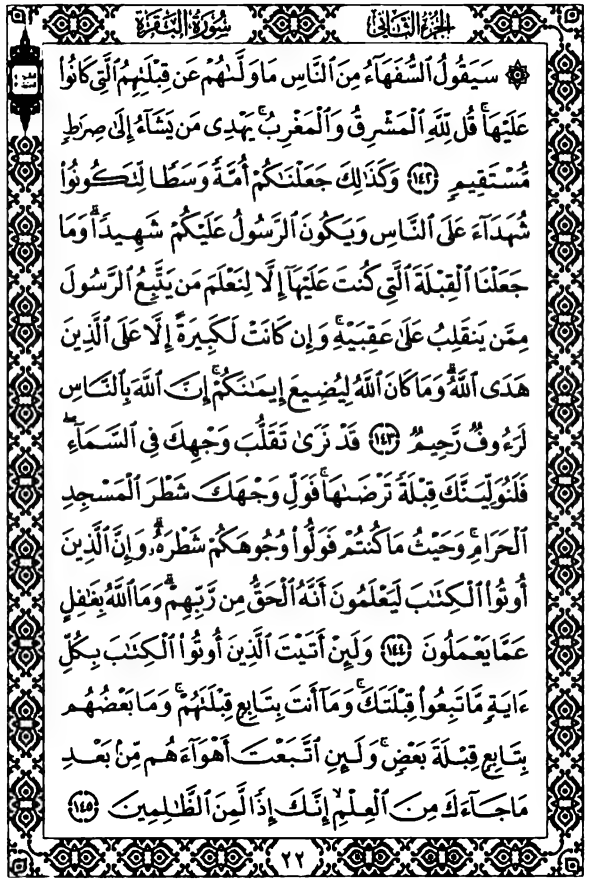 سُورَةُ البَقَرَةِ
الجُزْءُ الثَّانِي
۞ سَيَقُولُ ٱلسُّفَهَآءُ مِنَ ٱلنَّاسِ مَا وَلَّىٰهُمْ عَن قِبْلَتِهِمُ ٱلَّتِى كَانُوا۟
عَلَيْهَا ۚ قُل لِّلَّهِ ٱلْمَشْرِقُ وَٱلْمَغْرِبُ ۚ يَهْدِى مَن يَشَآءُ إِلَىٰ صِرَٰطٍ
مُّسْتَقِيمٍ ﴿١٤٢﴾ وَكَذَٰلِكَ جَعَلْنَٰكُمْ أُمَّةً وَسَطًا لِّتَكُونُوا۟
شُهَدَآءَ عَلَى ٱلنَّاسِ وَيَكُونَ ٱلرَّسُولُ عَلَيْكُمْ شَهِيدًا ۗ وَمَا
جَعَلْنَا ٱلْقِبْلَةَ ٱلَّتِى كُنتَ عَلَيْهَآ إِلَّا لِنَعْلَمَ مَن يَتَّبِعُ ٱلرَّسُولَ
مِمَّن يَنقَلِبُ عَلَىٰ عَقِبَيْهِ ۚ وَإِن كَانَتْ لَكَبِيرَةً إِلَّا عَلَى ٱلَّذِينَ
هَدَى ٱللَّهُ ۗ وَمَا كَانَ ٱللَّهُ لِيُضِيعَ إِيمَٰنَكُمْ ۚ إِنَّ ٱللَّهَ بِٱلنَّاسِ
لَرَءُوفٌ رَّحِيمٌ ﴿١٤٣﴾ قَدْ نَرَىٰ تَقَلُّبَ وَجْهِكَ فِى ٱلسَّمَآءِ ۖ
فَلَنُوَلِّيَنَّكَ قِبْلَةً تَرْضَىٰهَا ۚ فَوَلِّ وَجْهَكَ شَطْرَ ٱلْمَسْجِدِ
ٱلْحَرَامِ ۚ وَحَيْثُ مَا كُنتُمْ فَوَلُّوا۟ وُجُوهَكُمْ شَطْرَهُۥ ۗ وَإِنَّ ٱلَّذِينَ
أُوتُوا۟ ٱلْكِتَٰبَ لَيَعْلَمُونَ أَنَّهُ ٱلْحَقُّ مِن رَّبِّهِمْ ۗ وَمَا ٱللَّهُ بِغَٰفِلٍ
عَمَّا يَعْمَلُونَ ﴿١٤٤﴾ وَلَئِنْ أَتَيْتَ ٱلَّذِينَ أُوتُوا۟ ٱلْكِتَٰبَ بِكُلِّ
ءَايَةٍ مَّا تَبِعُوا۟ قِبْلَتَكَ ۚ وَمَآ أَنتَ بِتَابِعٍ قِبْلَتَهُمْ ۚ وَمَا بَعْضُهُم
بِتَابِعٍ قِبْلَةَ بَعْضٍ ۚ وَلَئِنِ ٱتَّبَعْتَ أَهْوَآءَهُم مِّنۢ بَعْدِ
مَا جَآءَكَ مِنَ ٱلْعِلْمِ ۙ إِنَّكَ إِذًا لَّمِنَ ٱلظَّٰلِمِينَ ﴿١٤٥﴾
٢٢